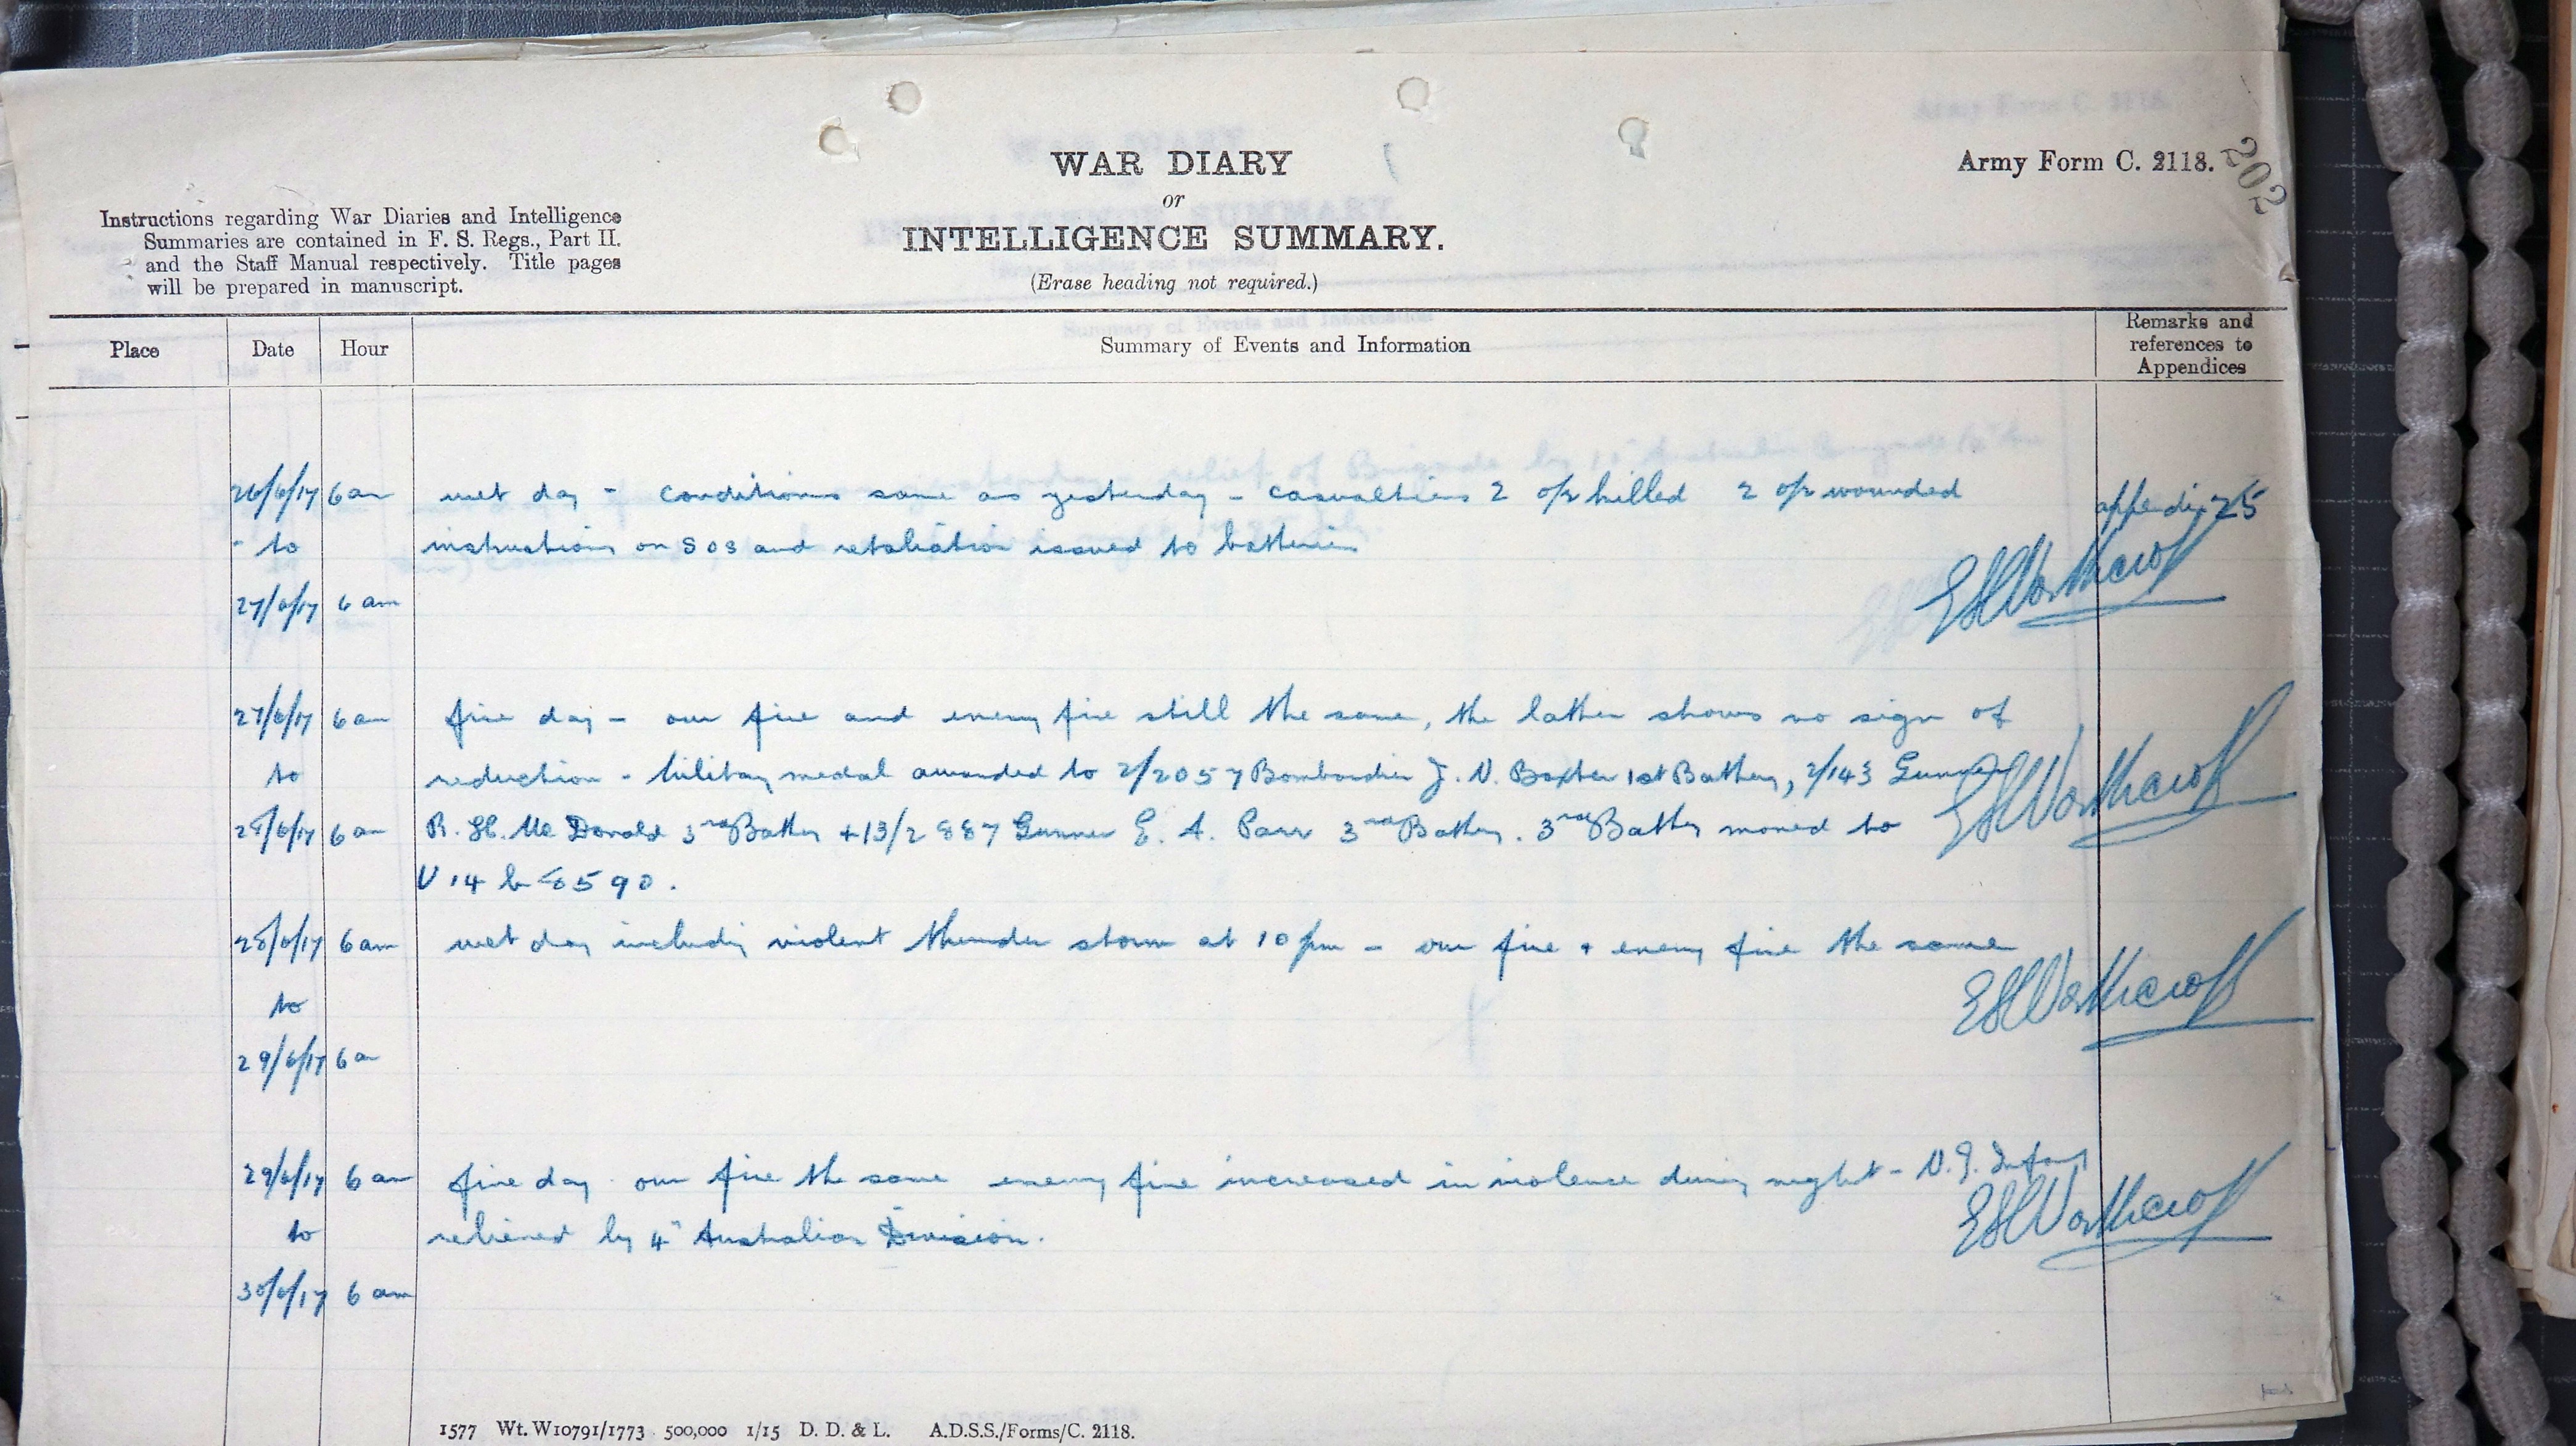 WAR DIARY
or
INTELLIGENCE SUMMARY.
(Erase heading not required.)
Army Form C. 2118.
202
Instructions regarding War Diaries and Intelligence
Summaries are contained in F. S. Regs., Part II.
and the Staff Manual respectively. Title pages
will be prepared in manuscript.
Place Date Hour Summary of Events and Information Remarks and
references to
Appendices
26/6/17 6 am wet day - conditions same as yesterday - casualties 2 o/r killed 2 o/r wounded
- to instructions on SOS and retaliation issued to batteries
27/6/17 6 am
27/6/17 6 am fine day - our fire and enemy fire still the same, the latter shows no sign of
to reduction - Military medal awarded to 2/2057 Bombardier J. V. Baxter 1st Battery, 2/143 Gunner
28/6/17 6 am R. H. Mc Donald 3rd Battery + 13/2887 Gunner E. A. Parr 3rd Battery. 3rd Battery moved to
U 14 b 8590.
28/6/17 6 am wet day including violent thunder storm at 10 pm - our fire + enemy fire the same
to
29/6/17 6 am
29/6/17 6 am fine day our fire the same enemy fire increased in violence during night - N.Z. Infantry
to relieved by 4" Australian Division.
30/6/17 6 am
1577 Wt. W10791/1773 500,000 1/15 D. D. & L. A.D.S.S./Forms/C. 2118.